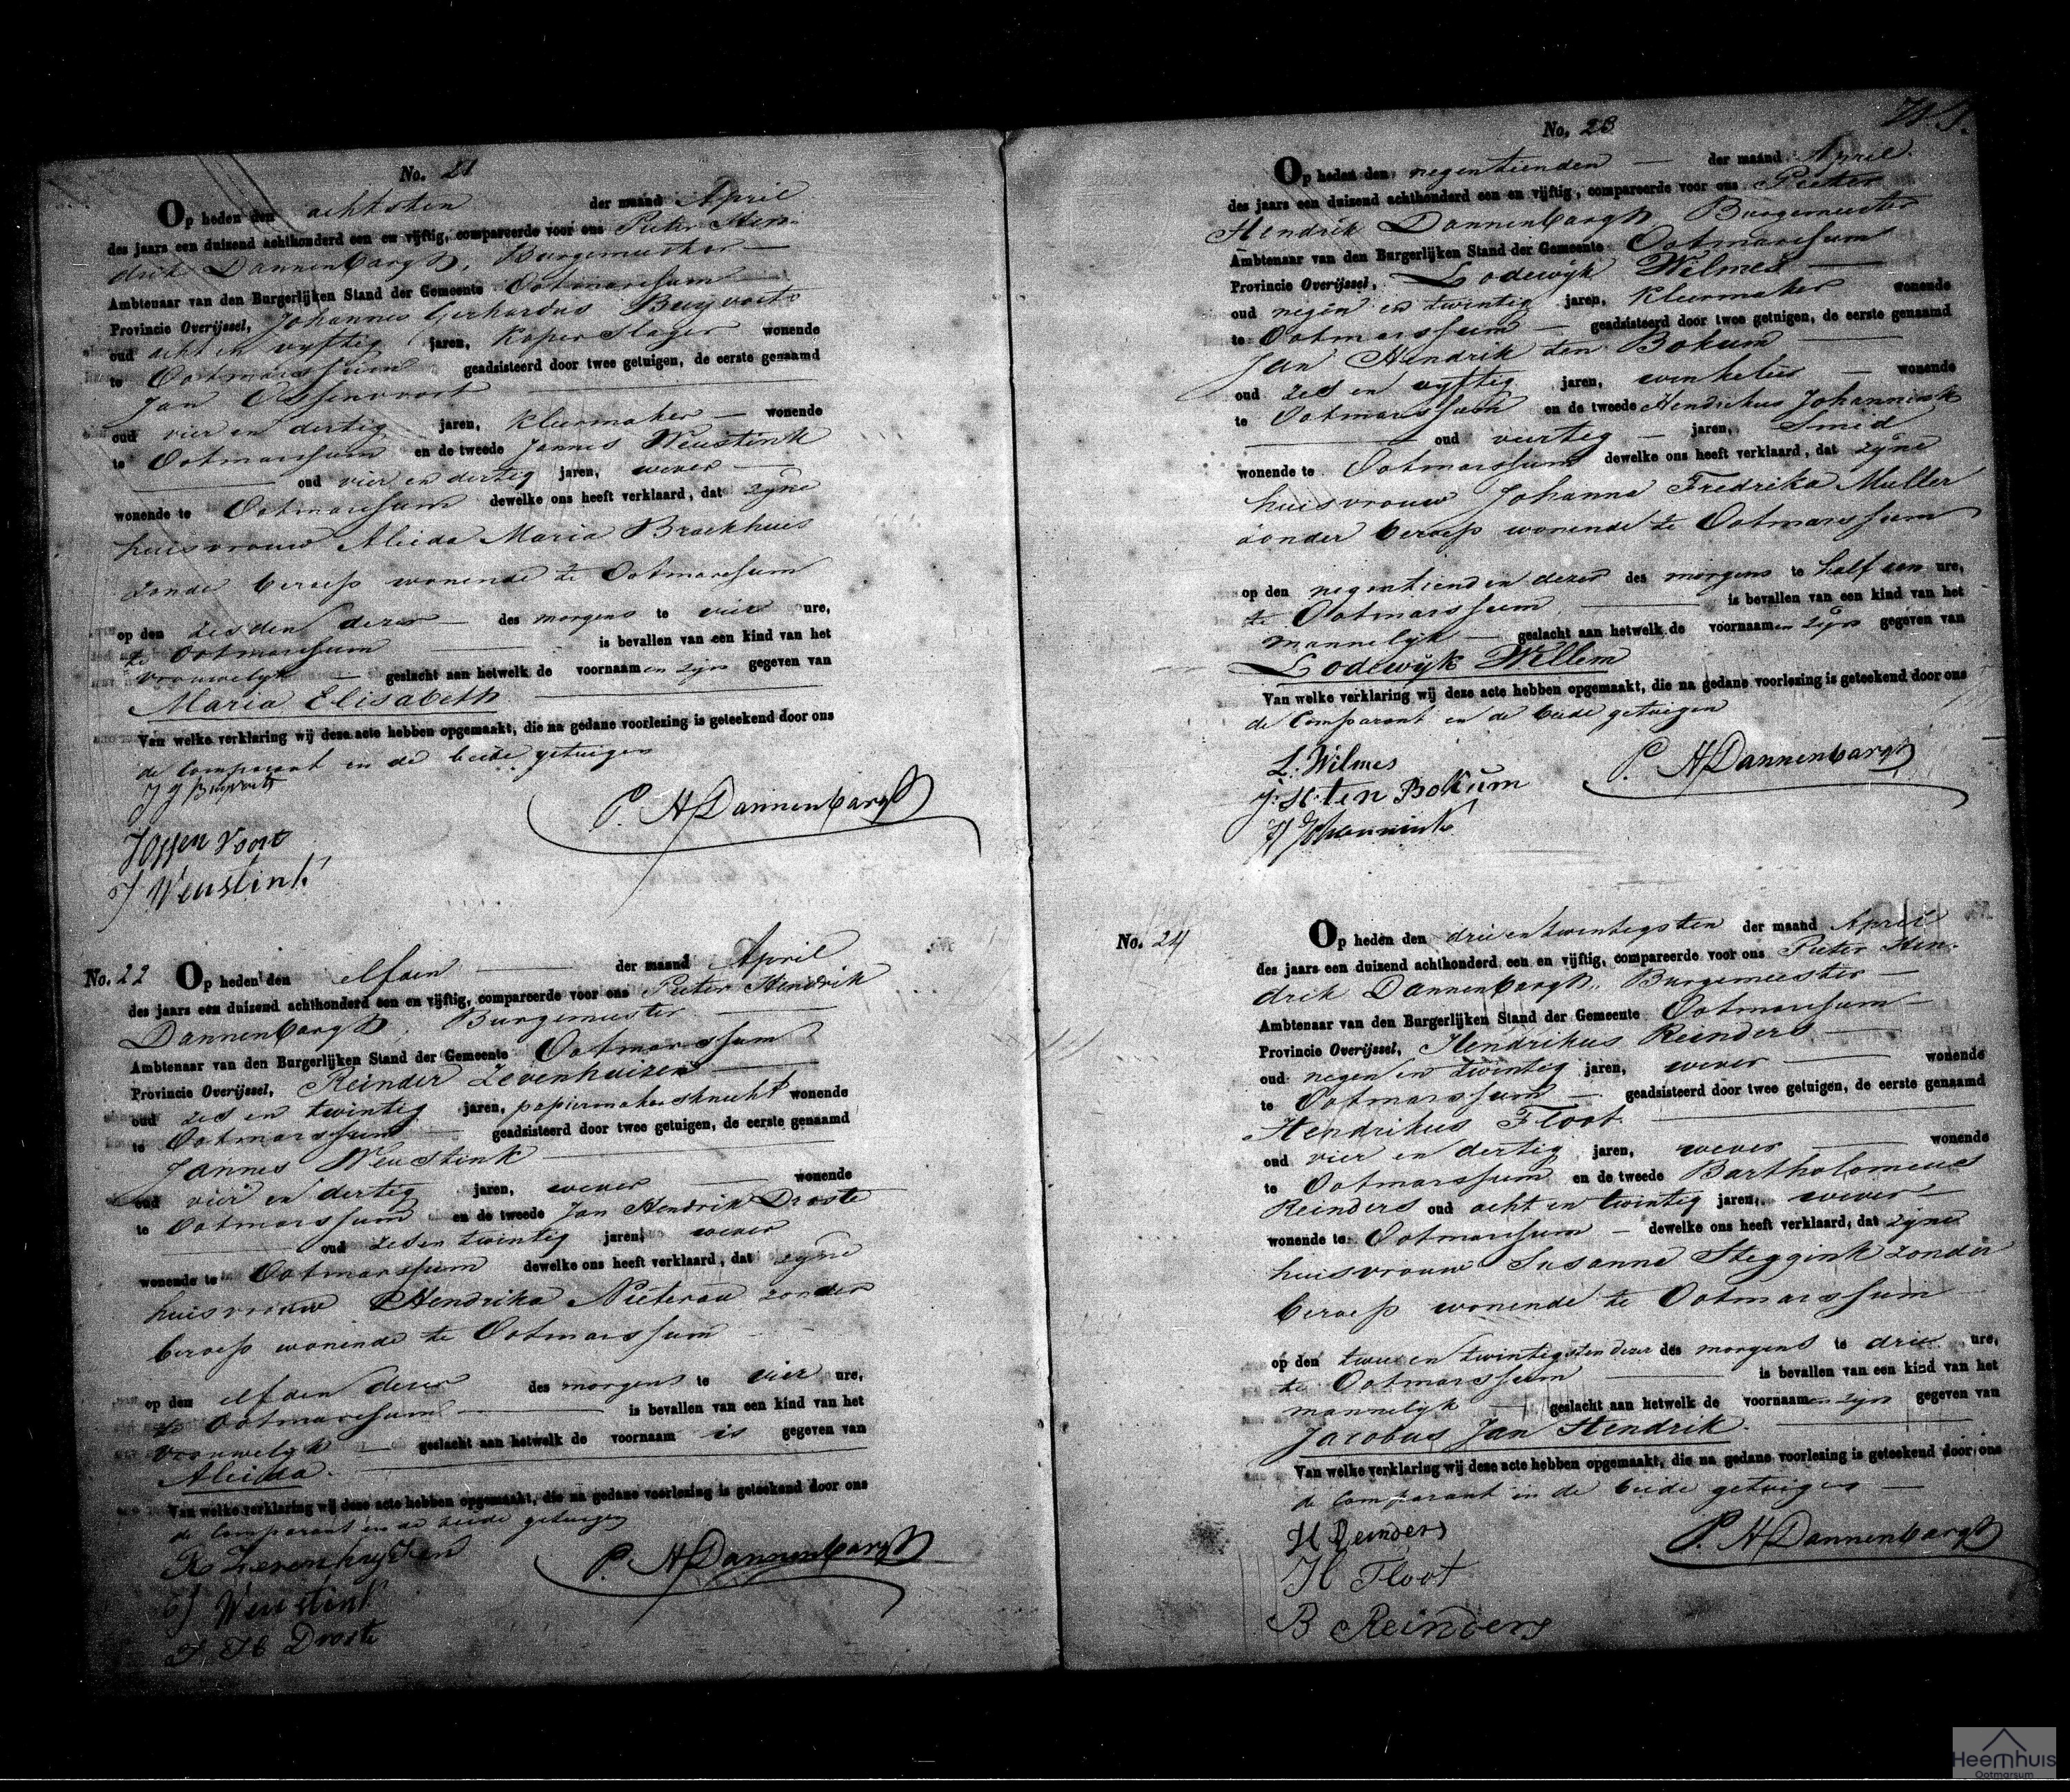 No. 21
Op heden den achtsten der maand April
des jaars een duizend achthonderd een en vijftig, compareerde voor ons Pieter Hen-
drik Dannenbargh, Burgemeester
Ambtenaar van den Burgerlijken Stand der Gemeente Ootmarssum
Provincie Overijssel, Johannes Gerhardus Buyvoets
oud acht en vyftig jaren, Koperslager wonende
te Ootmarssum geadsisteerd door twee getuigen, de eerste genaamd
Jan Ossenvoort
oud vier en dertig jaren, Kleermaker wonende
te Ootmarssum en de tweede Jannes Weustink
oud vier en dertig jaren, wever
wonende te Ootmarssum dewelke ons heeft verklaard, dat zyne
huisvrouw Aleida Maria Braakhuis
zonde beroep wonende te Ootmarssum
op den zesden dezer des morgens te vier ure,
te Ootmarssum is bevallen van een kind van het
vrouwelyk geslacht aan hetwelk de voornaamen zijn gegeven van
Maria Elisabeth
Van welke verklaring wij deze acte hebben opgemaakt, die na gedane voorlezing is geteekend door ons
de Comparant en de beide getuigen
J G Buyvoets
P. H Dannenbargh
J Ossenvoort
J Weustink
No. 22 Op heden den elfden der maand April
des jaars een duizend achthonderd een en vijftig, compareerde voor ons Pieter Hendrik
Dannenbargh, Burgemeester
Ambtenaar van den Burgerlijken Stand der Gemeente Ootmarssum
Provincie Overijssel, Reinder Zevenhuizen
oud zes en twintig jaren, papiermakersknecht wonende
te Ootmarssum geadsisteerd door twee getuigen, de eerste genaamd
Jannes Weustink
oud vier en dertig jaren, wever wonende
te Ootmarssum en de tweede Jan Hendrik Droste
oud zes en twintig jaren, wever
wonende te Ootmarssum dewelke ons heeft verklaard, dat zyne
huisvrouw Hendrika Nieterau zonder
beroep wonende te Ootmarssum
op den elfden dezer des morgens te vier ure,
te Ootmarssum is bevallen van een kind van het
vrouwelyk geslacht aan hetwelk de voornaam is gegeven van
Aleida.
Van welke verklaring wij deze acte hebben opgemaakt, die na gedane voorlezing is geteekend door ons
de Comparant en de beide getuigen
R Zevenhuyzen
P. H Dannenbargh
J Weustink
J H Droste
No. 23
Op heden den negentienden der maand April.
des jaars een duizend achthonderd een en vijftig, compareerde voor ons Pieter
Hendrik Dannenbargh Burgemeester
Ambtenaar van den Burgerlijken Stand der Gemeente Ootmarssum
Provincie Overijssel, Lodewyk Wilmes
oud negen en twintig jaren, Kleermaker wonende
te Ootmarssum geadsisteerd door twee getuigen, de eerste genaamd
Jan Hendrik ten Bokum
oud zes en vyftig jaren, winkelier wonende
te Ootmarssum en de tweede Hendrikus Johannink
oud veertig jaren, Smid
wonende te Ootmarssum dewelke ons heeft verklaard, dat zyne
huisvrouw Johanna Fredrika Muller
zonder beroep wonende te Ootmarssum
op den negentienden dezer des morgens te half een ure,
te Ootmarssum is bevallen van een kind van het
mannelyk geslacht aan hetwelk de voornaamen zijn gegeven van
Lodewyk Willem
Van welke verklaring wij deze acte hebben opgemaakt, die na gedane voorlezing is geteekend door ons
de Comparant en de beide getuigen
L. Wilmes
P. H Dannenbargh
J: H: ten Bokum
H Johannink
No. 24 Op heden den drieentwintigsten der maand April
des jaars een duizend achthonderd een en vijftig, compareerde voor ons Pieter Hen-
drik Dannenbargh, Burgemeester
Ambtenaar van den Burgerlijken Stand der Gemeente Ootmarssum
Provincie Overijssel, Hendrikus Reinders
oud negen en twintig jaren, wever wonende
te Ootmarssum geadsisteerd door twee getuigen, de eerste genaamd
Hendrikus Floot.
oud vier en dertig jaren, wever wonende
te Ootmarssum en de tweede Bartholomeus
Reinders oud acht en twintig jaren, wever
wonende te Ootmarssum dewelke ons heeft verklaard, dat zyne
huisvrouw Susanna Steggink zonder
beroep wonende te Ootmarssum
op den twee en twintigsten dezer des morgens te drie ure,
te Ootmarssum is bevallen van een kind van het
mannelyk geslacht aan hetwelk de voornaamen zijn gegeven van
Jacobus Jan Hendrik.
Van welke verklaring wij deze acte hebben opgemaakt, die na gedane voorlezing is geteekend door ons
de Comparant en de beide getuigen
H Reinders
P. H Dannenbargh
H Floot
B Reinders
Heemhuis
Ootmarsum